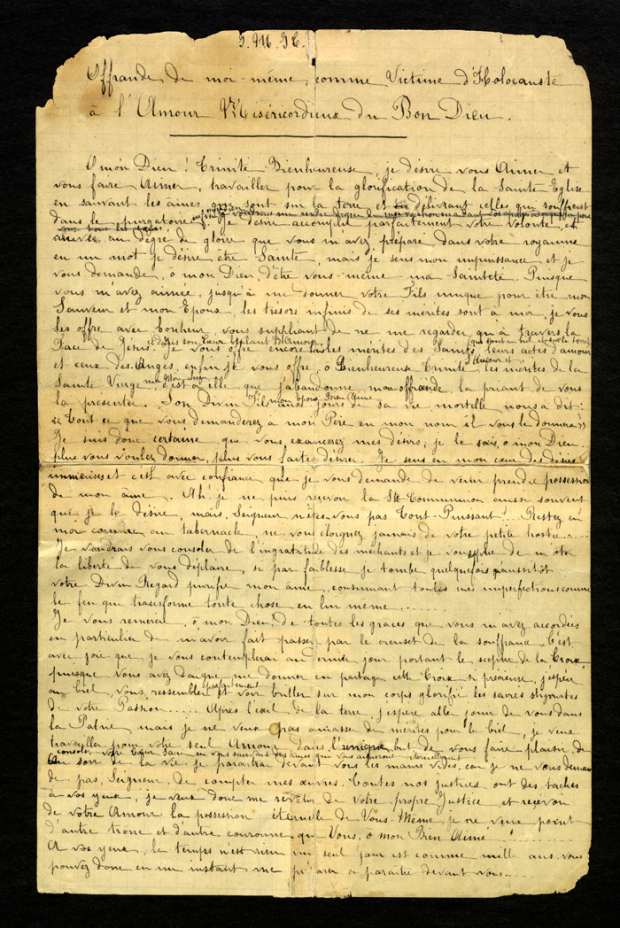 J.M.J.T.
Offrande de moi-même, comme Victime d'Holocauste
à l'Amour Miséricordieux du Bon Dieu.
O mon Dieu ! Trinité Bienheureuse, je désire vous Aimer et
vous faire Aimer, travailler pour la glorification de la Sainte Eglise
en sauvant les âmes qui sont sur la terre et délivrant celles qui souffrent
dans le purgatoire. Je désire accomplir parfaitement votre volonté, et
arriver au degré de gloire que vous m'avez préparé dans votre royaume
en un mot je désire être Sainte, mais je sens mon impuissance et je
vous demande, ô mon Dieu, d'être vous-même ma Sainteté. Puisque
vous m'avez aimée jusqu'à me donner votre Fils unique pour être mon
Sauveur et mon Epoux, les trésors infinis de ses mérites sont à moi, je vous
les offre avec bonheur, vous suppliant de ne me regarder qu'à travers la
Face de Jésus et dans son Coeur brûlant d'Amour
Je vous offre encore tous les mérites des Saints, leurs actes d'amour
et ceux des Anges, enfin je vous offre, ô Bienheureuse Trinité, les mérites de la
Sainte Vierge c'est à elle que j'abandonne mon offrande, la priant de vous
la présenter. Son Divin Fils aux jours de sa vie mortelle nous a dit :
"Tout ce que vous demanderez à mon Père en mon nom il vous le donnera"
Je suis donc certaine que vous exaucerez mes désirs, je le sais, ô mon Dieu
plus vous voulez donner, plus vous faites désirer. Je sens en mon coeur des désirs
immenses et c'est avec confiance que je vous demande de venir prendre possession
de mon âme. Ah ! je ne puis recevoir la Ste Communion aussi souvent
que je le désire, mais, Seigneur n'êtes-vous pas Tout-Puissant !... Restez en
moi comme au tabernacle, ne vous éloignez jamais de votre petite hostie.....
Je voudrais vous consoler de l'ingratitude des méchants et je vous supplie de m'ôter
la liberté de vous déplaire, si par faiblesse je tombe quelquefois qu'aussitôt
votre Divin Regard purifie mon âme, consumant toutes mes imperfections comme
le feu qui transforme toute chose en lui-même.....
Je vous remercie, ô mon Dieu, de toutes les grâces que vous m'avez accordées
en particulier de m'avoir fait passer par le creuset de la souffrance. C'est
avec joie que je vous contemplerai au dernier jour portant le sceptre de la Croix
puisque vous avez daigné me donner en partage cette Croix si précieuse, j'espère
au Ciel, vous ressembler et voir briller sur mon corps glorifié les sacrés stigmates
de votre Passion..... Après l'exil de la terre, j'espère aller jouir de vous dans
la Patrie, mais je ne veux pas amasser de mérites pour le Ciel, je veux
travailler pour votre seul Amour dans l'unique but de vous faire plaisir de
consoler votre Coeur Sacré et de sauver des âmes qui vous aimeront éternellement
Au soir de la vie je paraîtrai devant vous les mains vides, car je ne vous demande
pas, Seigneur, de compter mes oeuvres. Toutes nos justices ont des taches
à vos yeux, je veux donc me revêtir de votre propre Justice et recevoir
de votre Amour la possession éternelle de Vous-Même, je ne veux point
d'autre trône et d'autre couronne que Vous, ô mon Bien-Aimé !.....
A vos yeux, le temps n'est rien un seul jour est comme mille ans, vous
pouvez donc en un instant me préparer à paraître devant vous.....